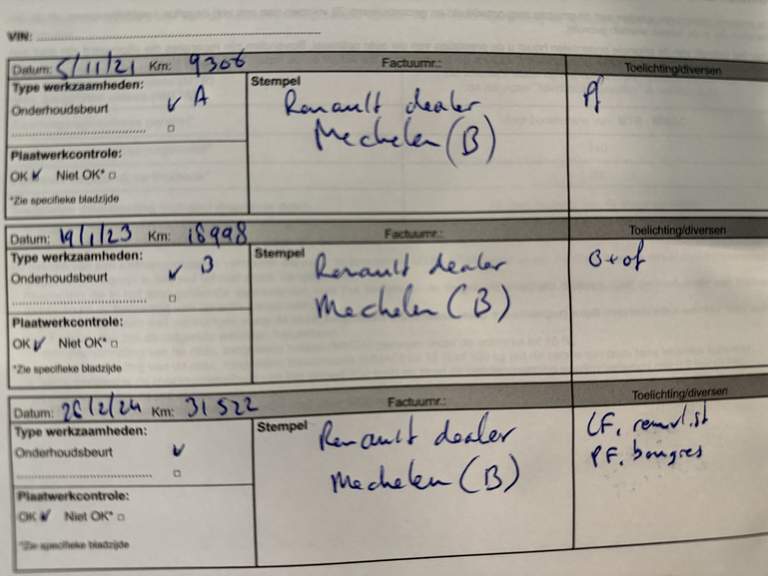 VIN:
Datum: 5/11/21 Km: 9306 Factuurnr.: Toelichting/diversen
Type werkzaamheden: Stempel
Onderhoudsbeurt A
Renault dealer
Mechelen (B)
Plaatwerkcontrole:
OK Niet OK*
*Zie specifieke bladzijde
Datum: 19/1/23 Km: 18998 Factuurnr.: Toelichting/diversen
Type werkzaamheden: Stempel
Onderhoudsbeurt B
Renault dealer
Mechelen (B)
B + of
Plaatwerkcontrole:
OK Niet OK*
*Zie specifieke bladzijde
Datum: 26/2/24 Km: 31522 Factuurnr.: Toelichting/diversen
Type werkzaamheden: Stempel
Onderhoudsbeurt
Renault dealer
Mechelen (B)
PF.
Plaatwerkcontrole:
OK Niet OK*
*Zie specifieke bladzijde